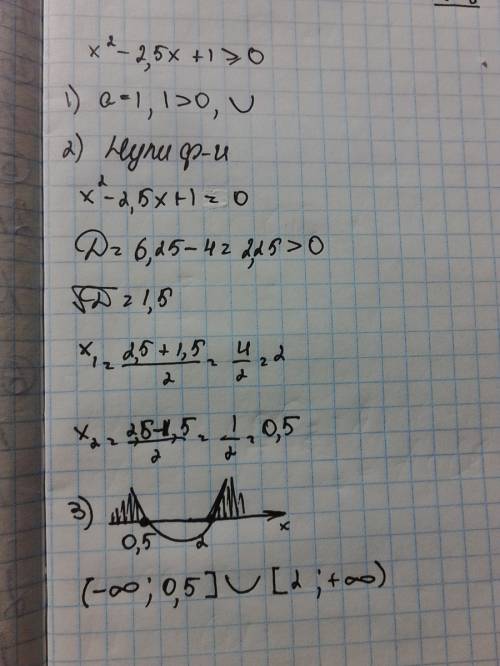 x² - 2,5x + 1 ≥ 0
1) a = 1, 1 > 0, ∪
2) Нули ф-и
x² - 2,5x + 1 = 0
D = 6,25 - 4 = 2,25 > 0
√D = 1,5
x₁ = (2,5 + 1,5)/2 = 4/2 = 2
x₂ = (2,5 - 1,5)/2 = 1/2 = 0,5
3)
0,5 2 x
(-∞; 0,5] ∪ [2; +∞)